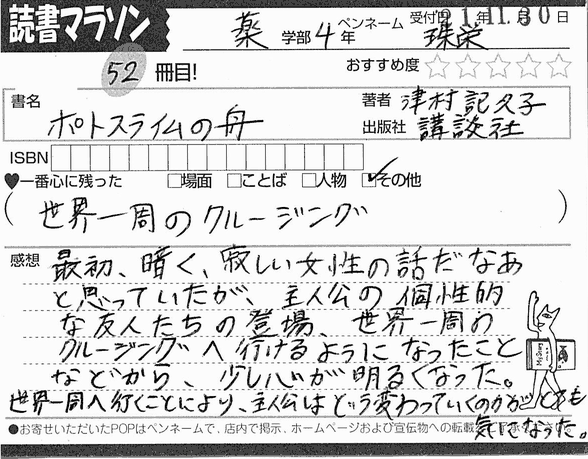 読書マラソン
薬 学部 4 年 ペンネーム 珠栄 受付日 21年11月30日
52 冊目! おすすめ度 ☆☆☆☆☆
書名 ポトスライムの舟
著者 津村記久子
出版社 講談社
ISBN
♥一番心に残った □場面 □ことば □人物 ☑その他
(世界一周のクルージング)
感想 最初、暗く、寂しい女性の話だなあ
と思っていたが、主人公の個性的
な友人たちの登場、世界一周の
クルージングへ行けるようになったこと
などから、少し心が明るくなった。
世界一周へ行くことにより、主人公はどう変わっていくのかがとても
気になった。
●お寄せいただいたPOPはペンネームで、店内で掲示、ホームページおよび宣伝物への転載